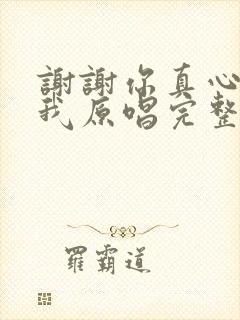 謝謝你真心
我原唱完整
羅霸道